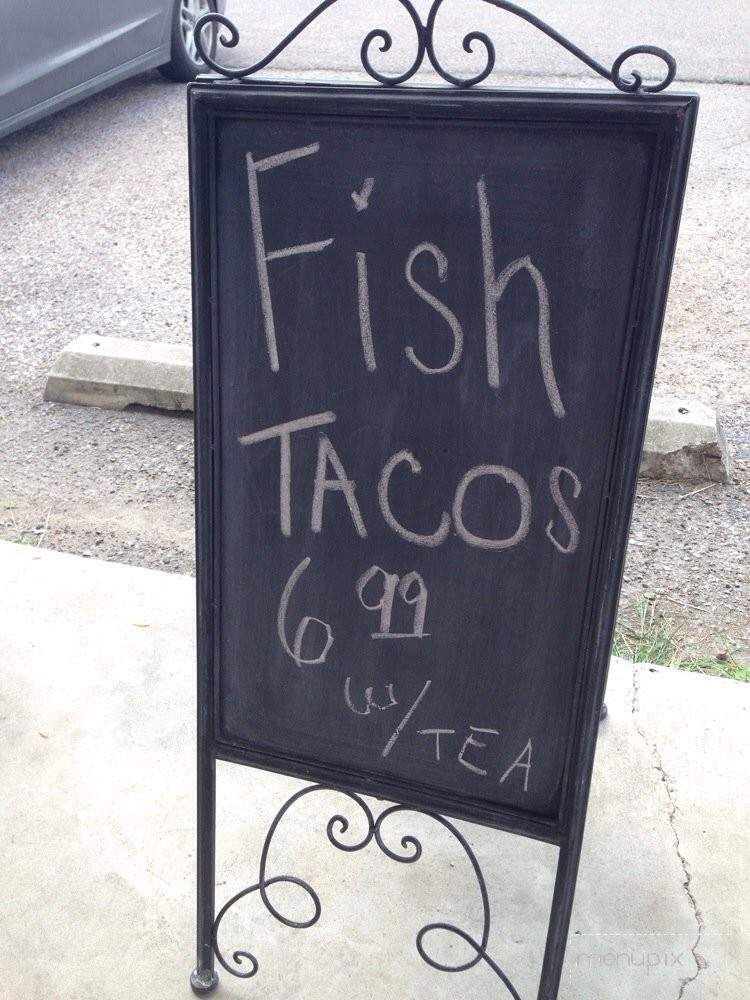 Fish
TACOS
6 99
w/ TEA
menupix